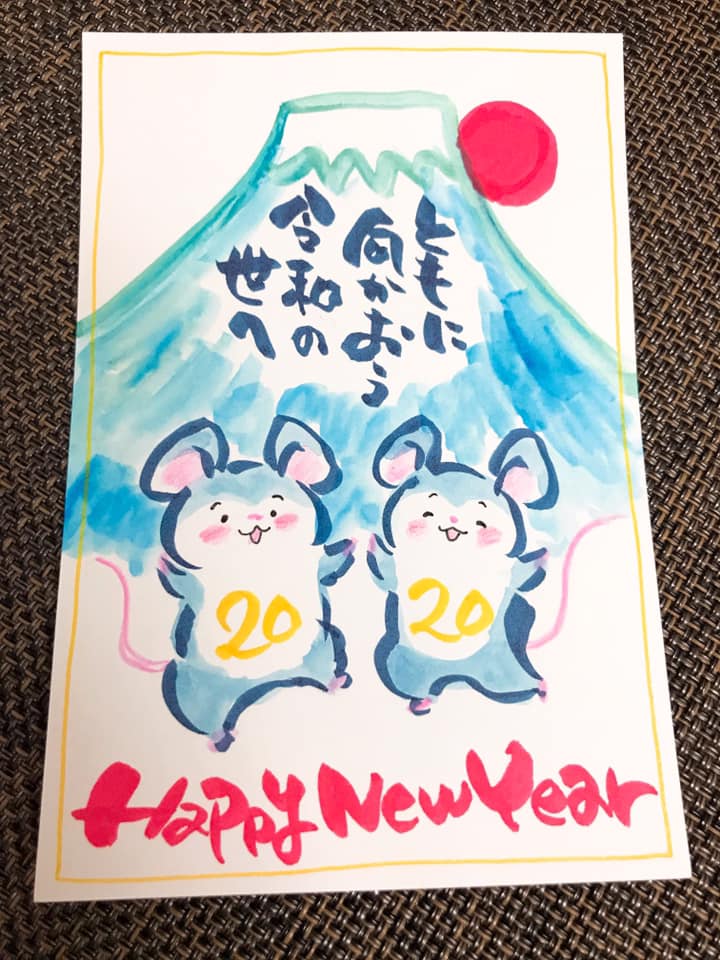 ともに
向かおう
令和の
世へ
20
20
Happy New Year